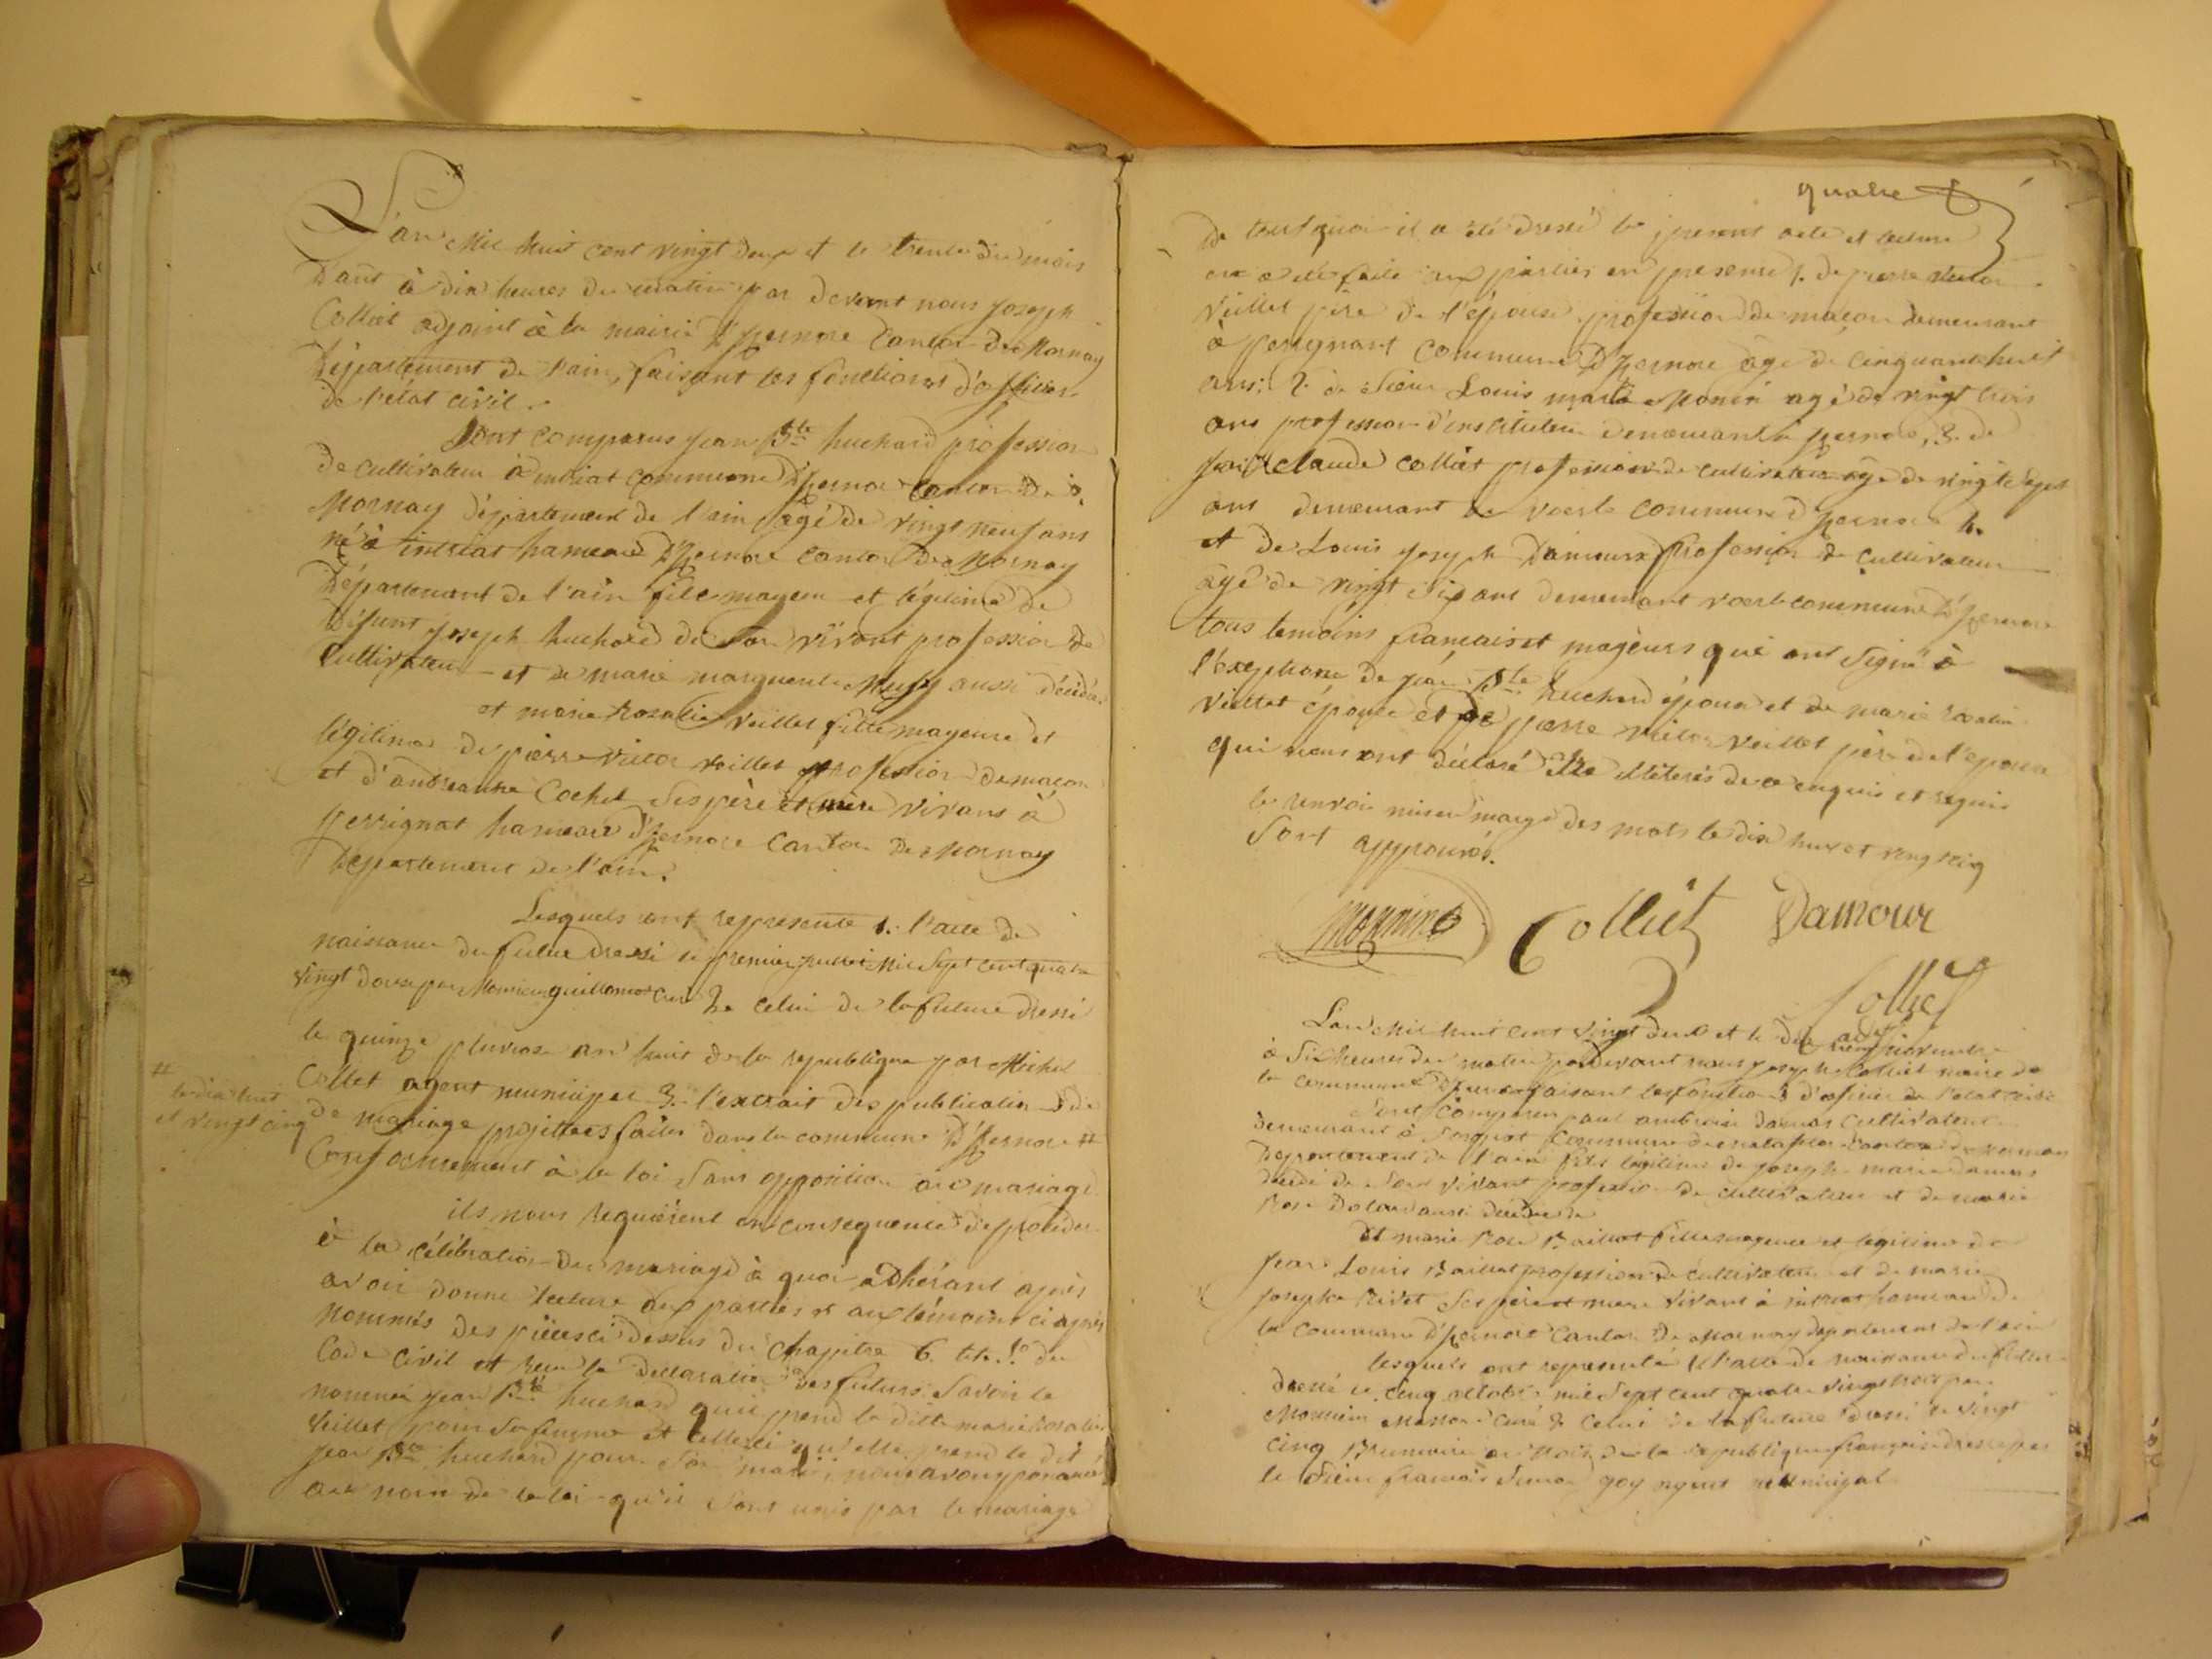 L'an mil huit cent vingt deux et le trente du mois
D'août à dix heures du matin par devant nous joseph
Colliet adjoint à la mairie d'Izernore Canton de Mornay
Département de l'ain, faisant les fonctions d'officier
de l'état civil.
Sont comparus jean Bte huchard profession
de cultivateur à intriat commune d'Izernore Canton de
Mornay département de l'ain agé de vingt neuf ans
né à intriat hameau d'Izernore canton de Mornay
Département de l'ain fils mageur et légitime de
Défunt joseph huchard de son vivant profession de
Cultivateur et de marie marguerite aussi décédée
et marie rosalie veillet fille mageure et
légitime de pierre victor veillet profession de maçon
et d'andreanne Cochet ses père et mère vivans à
perrignat hameau d'Izernore Canton de Mornay
Département de l'ain.
Lesquels ont representé 1. l'acte de
naissance du futur dressé le premier juillet mil sept cent quatre
vingt douze par Monsieur guillemot curé 2e celui de la future dressé
le quinze pluviose an huit de la republique par Michel
Collet agent municipal 3. l'extrait des publications de
# le dix huit
et vingt cinq
de mariage projettées faites dans la commune D'Izernore #
Conformement à la loi sans opposition au mariage
ils nous requièrent en consequence de proceder
à la célébration du mariage à quoi adhérant après
avoir donné lecture aux parties et aux témoins ci après
nommés des pièces ci dessus du chapitre 6. tit. 5e du
Code civil et reçu la declaration des futurs savoir le
nommé jean Bte huchard qu'il prend la ditte marie rosalie
Veillet pour sa femme et celle ci qu'elle prend le dit
jean Bte huchard pour son mari, nous avons prononcé
au nom de la loi qu'il sont unis par le mariage
quatre
De tout quoi il a été dressé le present acte et lecture
en a été faite aux parties en presence 1. de pierre victor
Veillet père de l'épouse profession de maçon demeurant
à perrignat commune D'Izernore âgé de cinquante huit
ans: 2. de sieur Louis marie agé de vingt trois
ans profession d'instituteur demeurant à Izernore, 3. de
claude colliet profession de cultivateur âgé de vingt sept
ans demeurant à voerle commune d'Izernore 4.
et de Louis joseph Damour profession de cultivateur
âgé de vingt six ans demeurant voerle commune D'Izernore
tous temoins français et mageurs qui ont signé à
l'exeption de jean Bte huchard époux et de marie rosalie
Veillet épouse et de pierre victor veillet père de l'epouse
qui nous ont déclaré être illiterés de ce enquis et requis
le renvoi mis en marge des mots le dix huit et vingt cinq
sont approuvés.
Colliet Damour
Colliet
adjt
L'an mil huit cent vingt deux et le dix novembre
à six heures du matin par devant nous joseph Colliet maire de
la commune d'Izernore faisant les fonctions d'officier de l'etat civil
Sont comparu paul ambroise damas cultivateur
demeurant à Commune de canton de
Departement de l'ain fils légitime de joseph marie damas
décédé de son vivant profession de cultivateur et de marie
Rose aussi décédée
Et marie Rose Baillat fille mageure et legitime de
jean Louis Baillat profession de cultivateur et de marie
josephe Rivet ses père et mère vivant à intriat hameau de
la commune d'Izernore Canton de Mornay departement de l'ain
lesquels ont representé 1. l'acte de naissance du futur
dressé le cinq octobre mil sept cent quatre vingt par
Monsieur curé 2. celui de la future dressé le vingt
cinq Brumaire an de la republique française dressé par
le sieur françois goy agent municipal